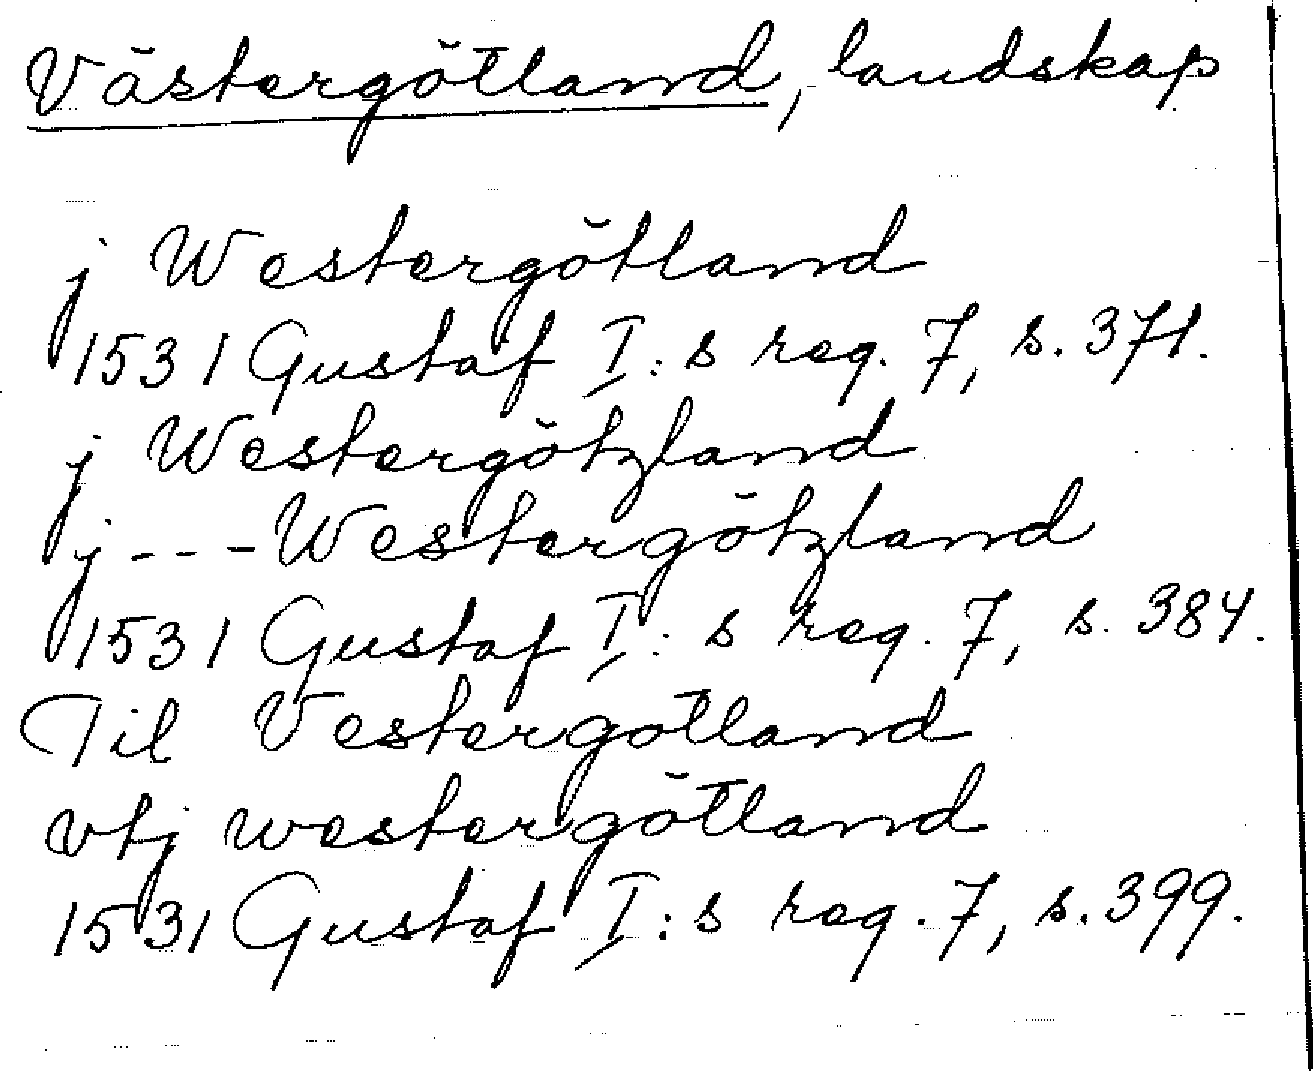 Västergötland, landskap
j Westergötland
1531 Gustaf I:s reg. 7, s. 371.
j Westergötzland
j --- Westergötzland
1531 Gustaf I:s reg. 7, s. 384.
Til Vestergotland
vtj westergötland
1531 Gustaf I:s reg. 7, s. 399.